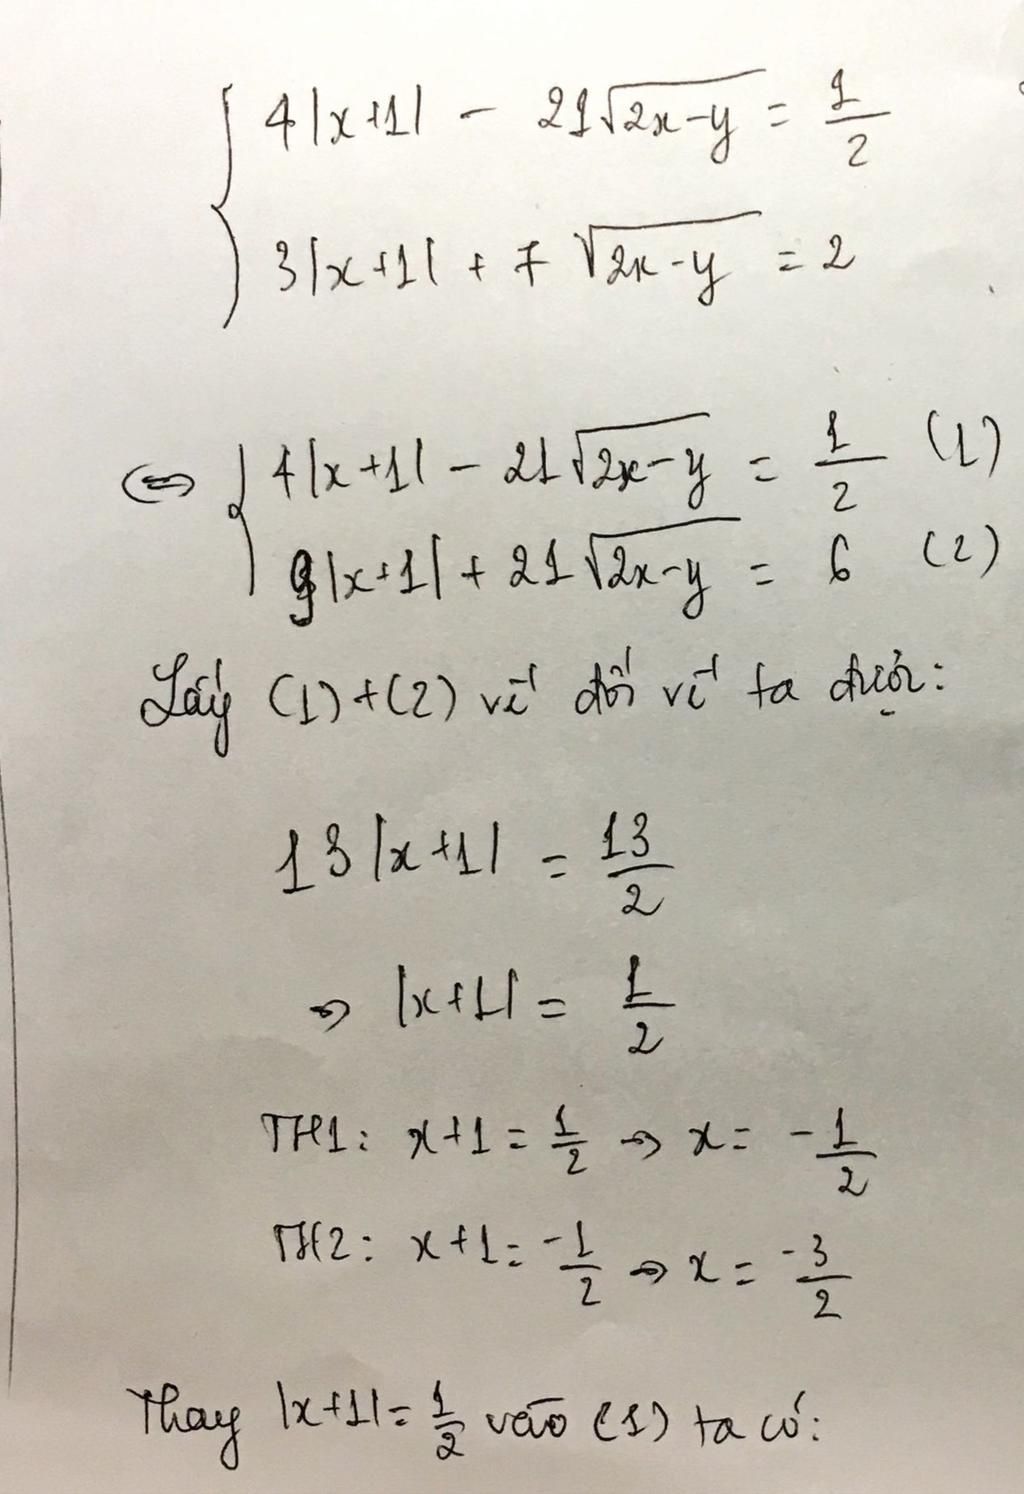 4|x+1| - 21√(2x-y) = 1/2
3|x+1| + 7√(2x-y) = 2
⇔ 4|x+1| - 21√(2x-y) = 1/2 (1)
9|x+1| + 21√(2x-y) = 6 (2)
Lấy (1)+(2) vế đối vế ta được:
13|x+1| = 13/2
⇒ |x+1| = 1/2
TH1: x+1 = 1/2 ⇒ x = -1/2
TH2: x+1 = -1/2 ⇒ x = -3/2
Thay |x+1| = 1/2 vào (1) ta có: